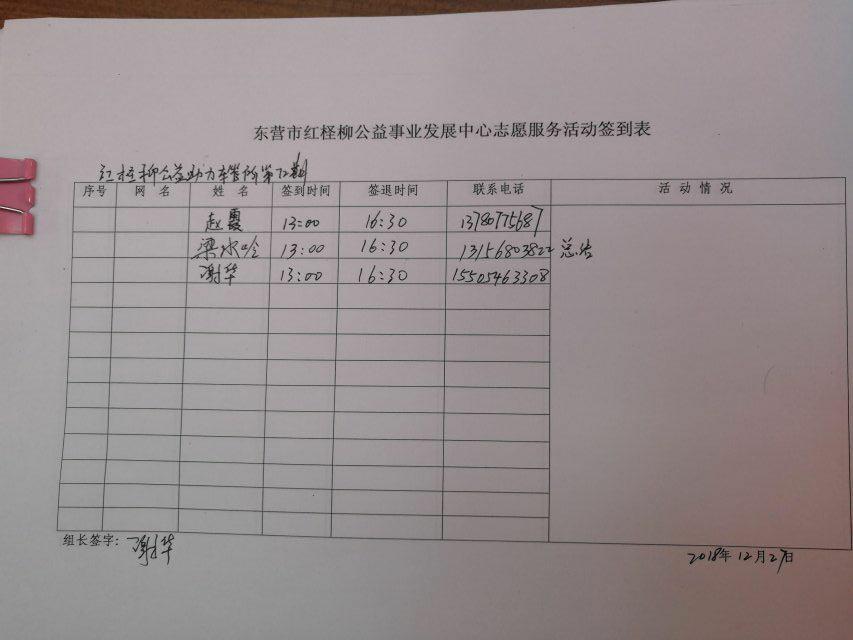 东营市红柽柳公益事业发展中心志愿服务活动签到表
红柽柳公益助力车管所第72期
序号 网名 姓名 签到时间 签退时间 联系电话 活动情况
赵霞 13:00 16:30
梁冰吟 13:00 16:30 13156803822
谢华 13:00 16:30 15505463308
组长签字：谢华
2018年12月27日